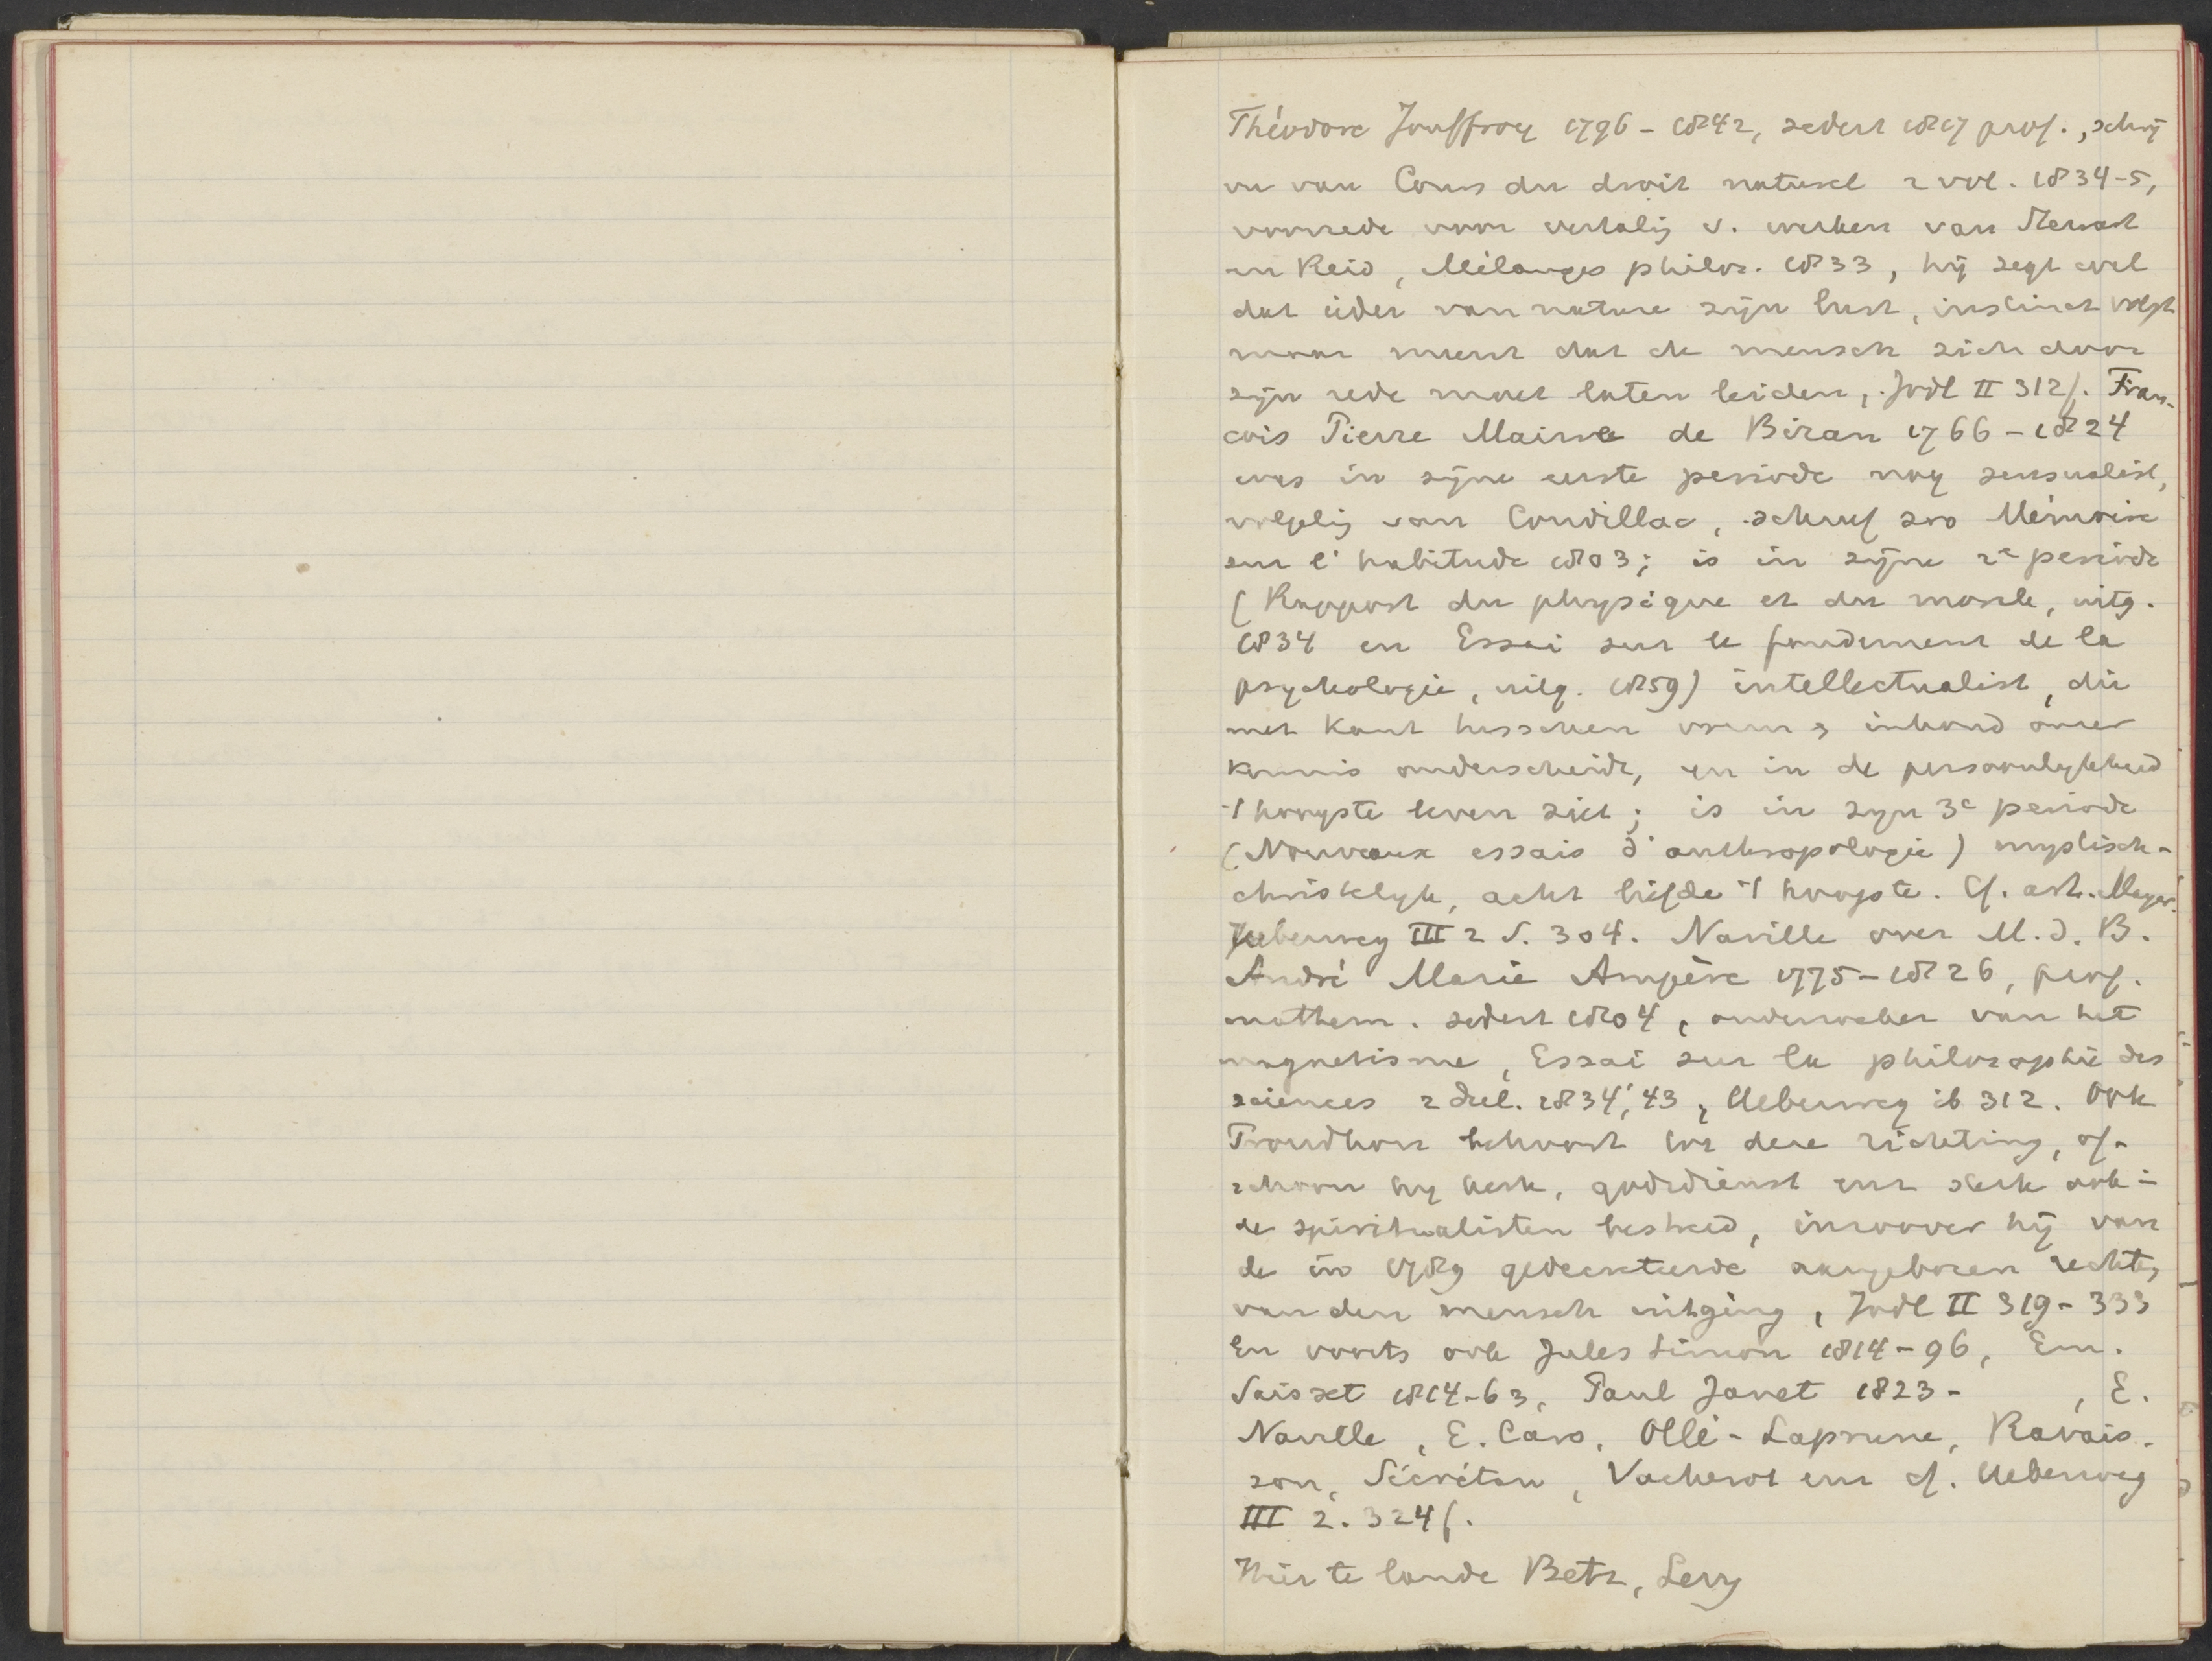 Théodore Jouffroy 1796-1842, sedert 1817 prof., schrij
ver van Cours du droit naturel 2 vol. 1834-5,
voorrede voor vertalig v. werken van Stewart
en Reid, Mélanges philos. 1833, hij zegt wel
dat ieder van nature zijn lust, instinct volgt
maar meent dat de mensch zich door
zijn rede moet laten leiden, Jodl II 312f. Fran-
cois Pierre Maine de Biran 1766-1824
was in zijne eerste periode nog sensualist,
volgelig van Condillac, schreef zoo Mémoire
sur l'habitude 1803; is in zijne 2e periode
(Rapport du physique et du morale, uitg.
1834 en Essai sur le fondement de la
psychologie, uitg. 1859) intellectualist, die
met Kant tusschen vorm & inhoud onzer
kennis onderscheidt, en in de persoonlykheid
't hoogste leven ziet; is in zyn 3e periode
(Nouveaux essais d'anthropologie) mystisch-
christelyk, acht liefde 't hoogste. Cf. art. Meyer.
Ueberweg III 2 S. 304. Naville over M. d. B.
André Marie Ampère 1775-1826, prof.
mathem. sedert 1804, ontdekker van het
magnetisme, Essai sur la philosophie des
sciences 2 deel. 1834,'43, Ueberweg ib 312. Ook
Proudhon behoort tot deze richting, of-
schoon hy kerk, godsdienst enz sterk ook in
de spiritualisten bestreed, inzoover hij van
de in 1789 gedecreteerde aangeboren rechten
van den mensch uitging, Jodl II 319-333
En voorts ook Jules Simon 1814-96, Em.
Saisset 1814-63, Paul Janet 1823- , E.
Naville, E. Caro, Ollé-Laprune, Ravais-
son, Sécrétan, Vacherot enz cf. Ueberweg
III 2. 324f.
Hier te lande Betz, Levy